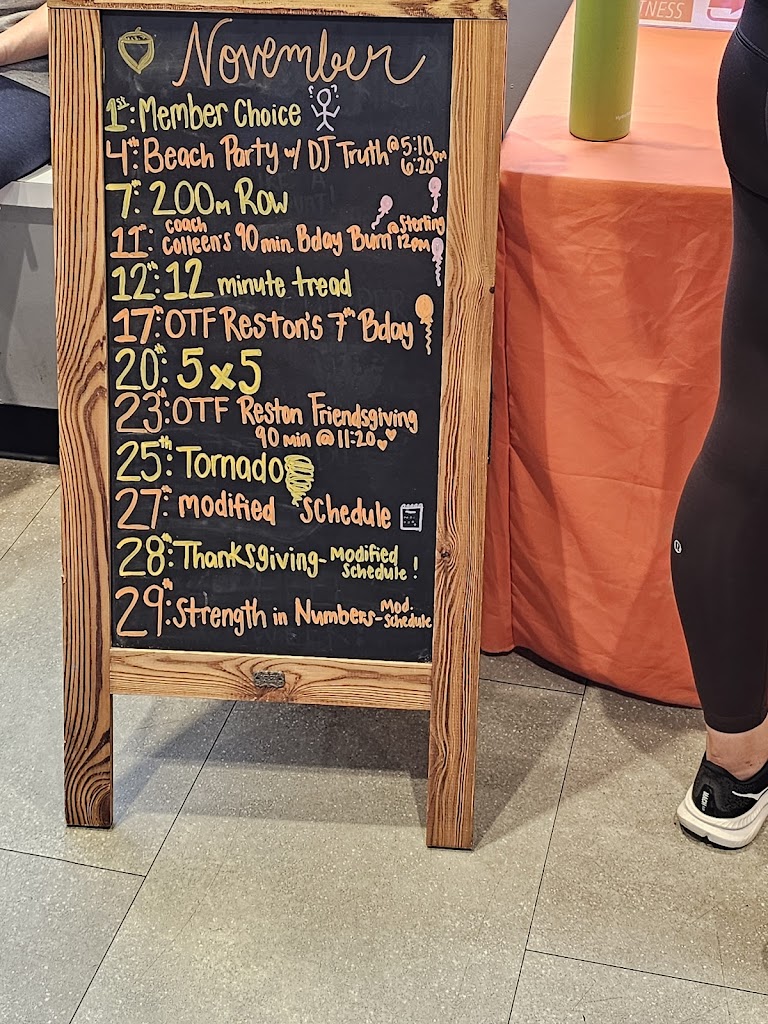 NESS
November
1st: Member Choice
4th: Beach Party w/ DJ Truth @ 5:10 6:20pm
7th: 200m Row
11th: Coach Colleen's 90 min. Bday Burn @ Sterling 12pm
12th: 12 minute tread
17th: OTF Reston's 7th Bday
20th: 5x5
23rd: OTF Reston Friendsgiving
90 min @ 11:20
25th: Tornado
27th: modified schedule
28th: Thanksgiving - Modified Schedule!
29th: Strength in Numbers - Mod. Schedule